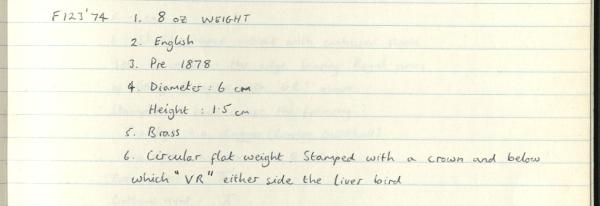 F123'74 1. 8 oz WEIGHT
2. English
3. Pre 1878
4. Diameter : 6 cm
Height : 1.5 cm
5. Brass
6. Circular flat weight Stamped with a crown and below
which "VR" either side the liver bird